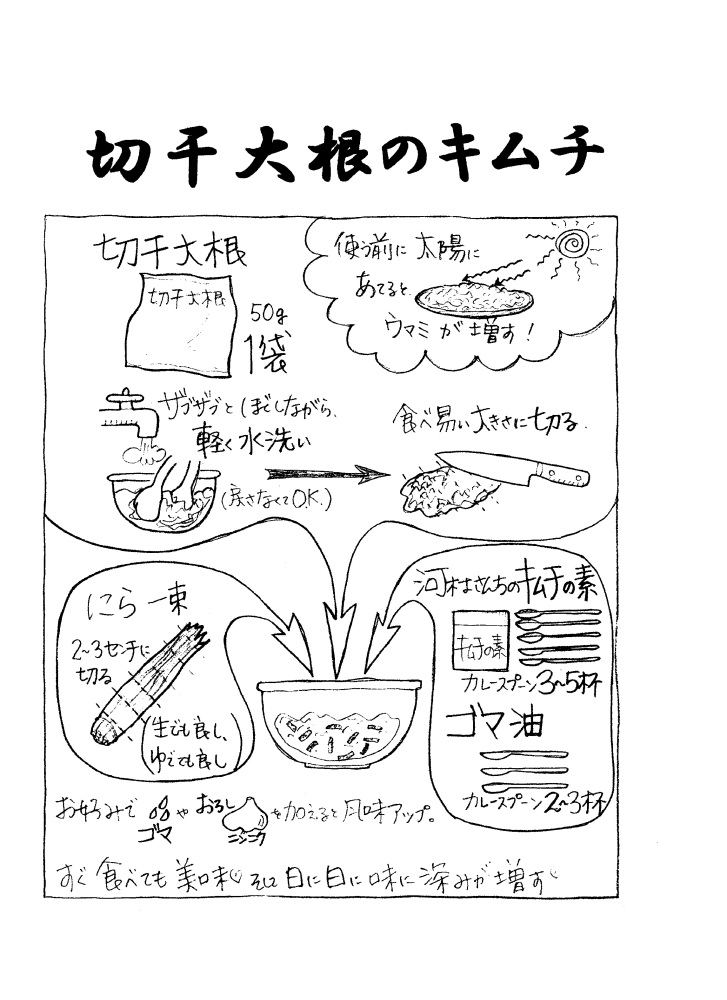 切干大根のキムチ
切干大根
切干大根
50g
1袋
使う前に太陽に
あてると
ウマミが増す！
ザブザブとほぐしながら、
軽く水洗い
(戻さなくてO.K.)
食べ易い大きさに切る.
にら一束
2~3センチに
切る
(生でも良し、
ゆでても良し)
河村さんちのキムチの素
キムチの素
カレースプーン3~5杯
ゴマ油
カレースプーン2~3杯
お好みで ゴマ や おろし ニンニク を加えると風味アップ。
すぐ食べても美味 そして日に日に味に深みが増す